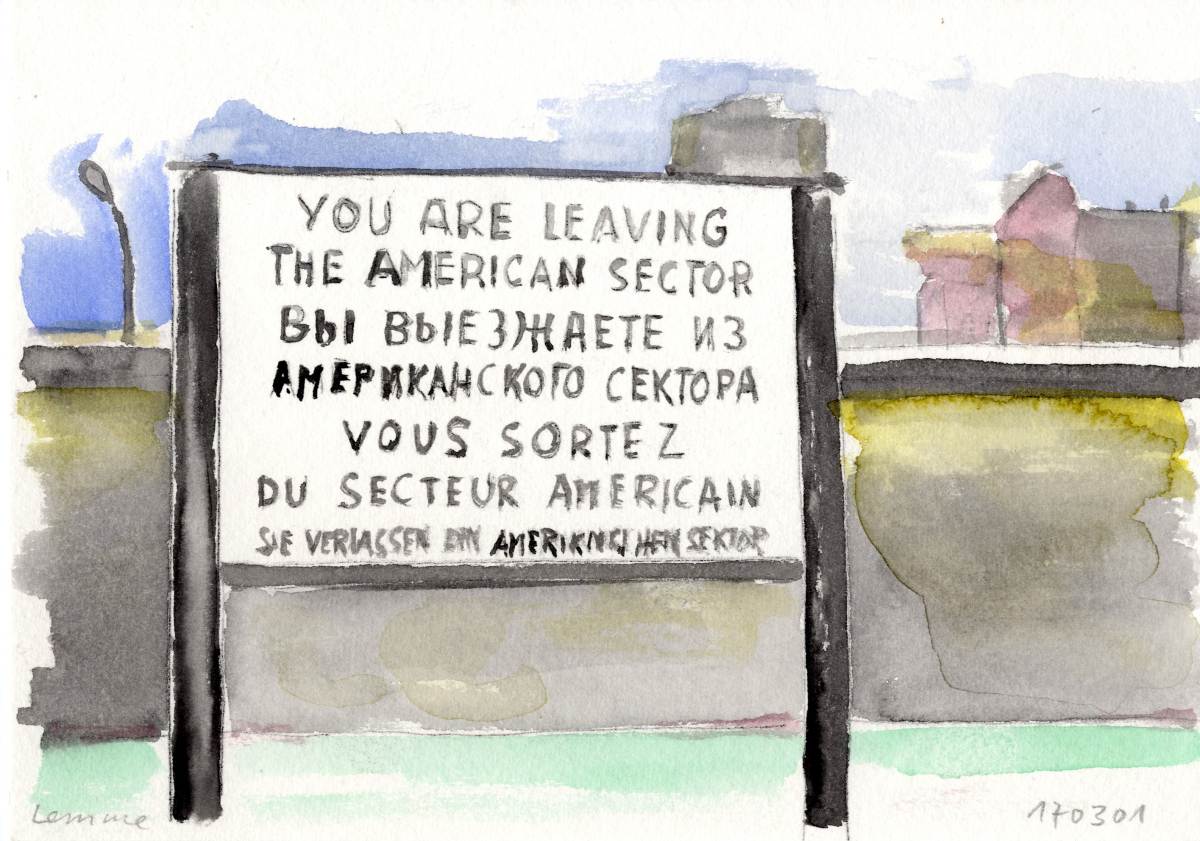 YOU ARE LEAVING
THE AMERICAN SECTOR
ВЫ ВЫЕЗЖАЕТЕ ИЗ
АМЕРИКАНСКОГО СЕКТОРА
VOUS SORTEZ
DU SECTEUR AMERICAIN
SIE VERLASSEN SEKTOR
170301